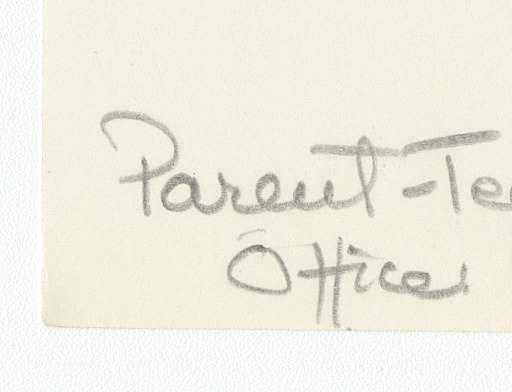 Parent-Te
Officer